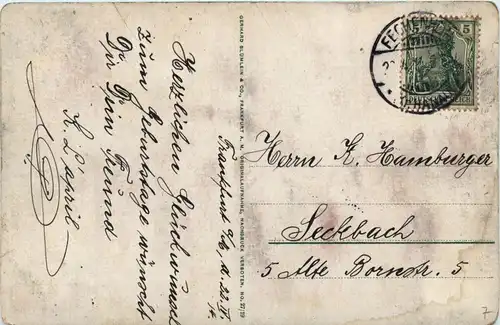 Frankfurt a/M, d. 22. IV
Herzlichen Glückwunsch
zum Geburtstage wünscht
Dir Dein Freund
K. L'april
GERHARD BLÜMLEIN & CO., FRANKFURT A. M. ORIGINALAUFNAHME, NACHDRUCK VERBOTEN. NO.
FECHENHEIM
5
Herrn K. Hamburger
Seckbach
5 Alte Bornstr. 5
7